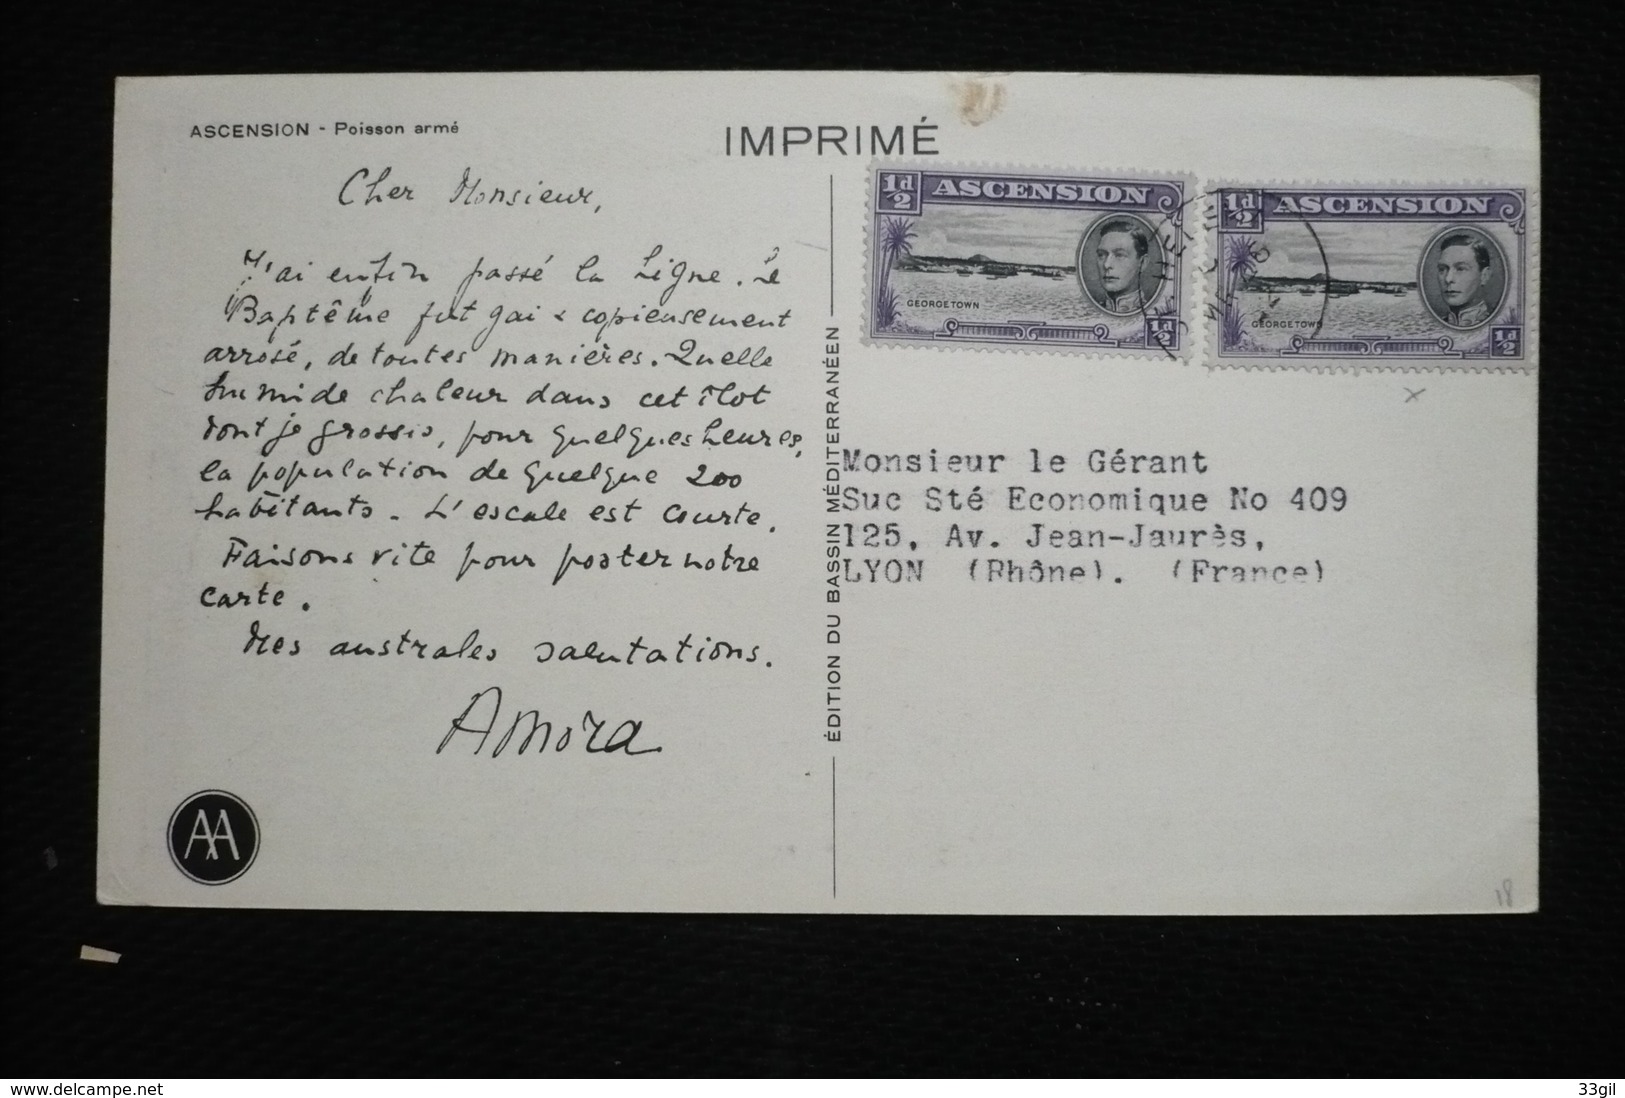 ASCENSION - Poisson armé
IMPRIMÉ
Cher Monsieur,
J'ai enfin passé la Ligne. Le
Baptême fut gai & copieusement
arrosé, de toutes manières. Quelle
humide chaleur dans cet îlot
dont je grossis, pour quelques heures,
la population de quelque 200
habitants. L'escale est courte.
Faisons vite pour poster notre
carte.
Mes australes salutations.
Amora
AA
ÉDITION DU BASSIN MÉDITERRANÉEN
1/2d ASCENSION
GEORGETOWN
1/2d
1/2d ASCENSION
GEORGETOWN
1/2d
Monsieur le Gérant
Suc Sté Economique No 409
125, Av. Jean-Jaurès,
LYON (Rhône). (France)
18
www.delcampe.net
33gil